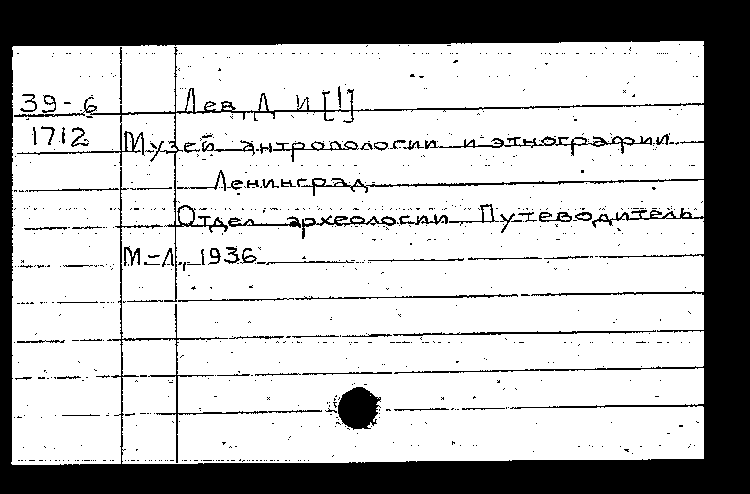 39-6 Лев, Л. И [!]
1712 Музей антропологии и этнографии
Ленинград.
Отдел археологии. Путеводитель.
М.-Л., 1936.